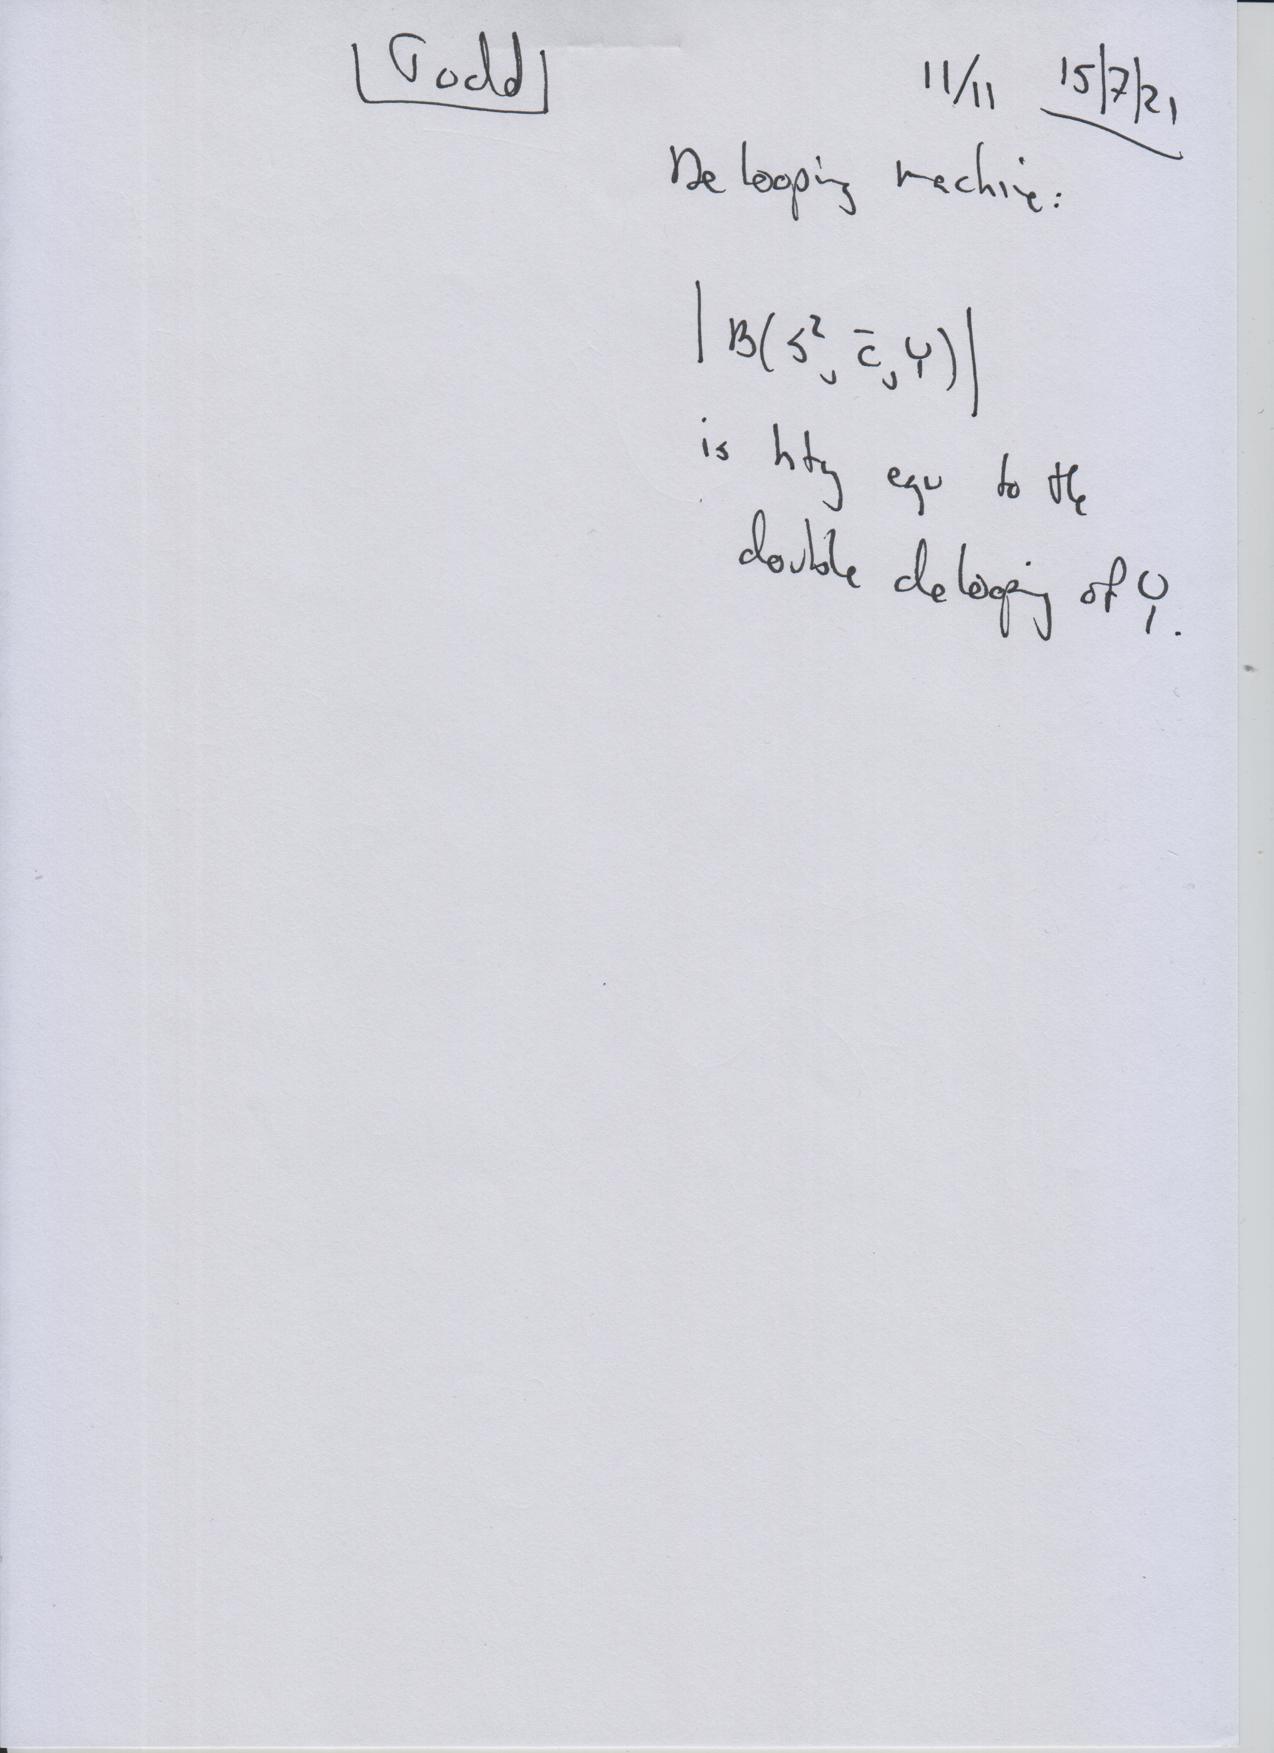 Todd
11/11 15/7/21
Delooping machine:
|B(S², c̄, Y)|
is hty equ to the
double delooping of Y.